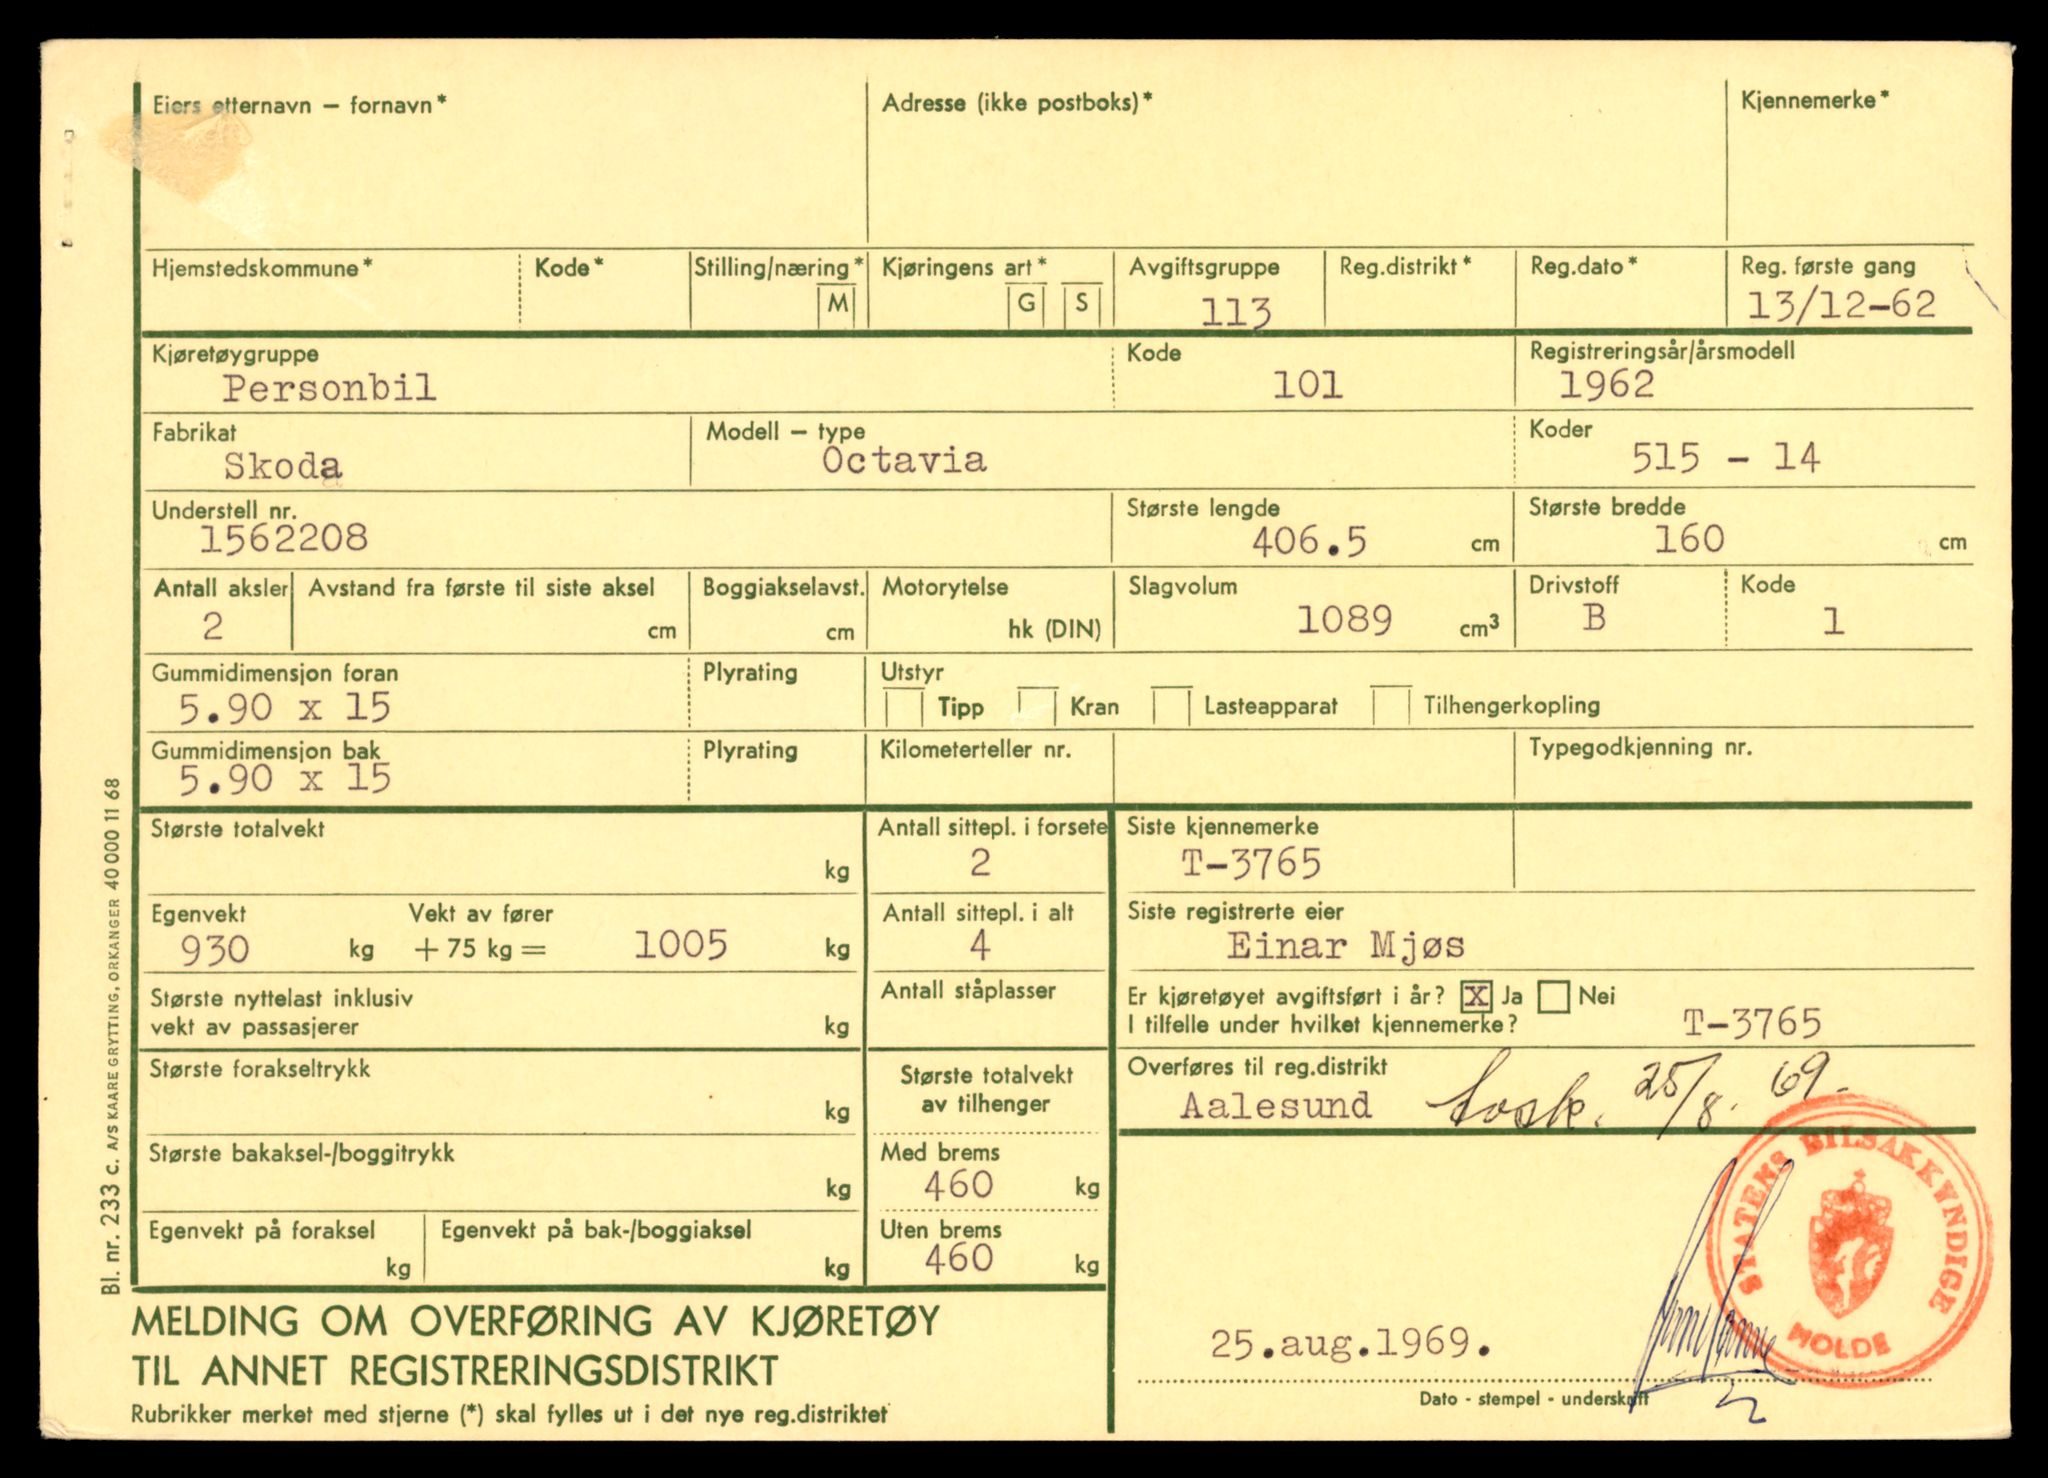 Eiers etternavn – fornavn*
Adresse (ikke postboks)*
Kjennemerke*
Hjemstedskommune*
Kode*
Stilling/næring*
M
Kjøringens art*
G S
Avgiftsgruppe
113
Reg.distrikt*
Reg.dato*
Reg. første gang
13/12-62
Kjøretøygruppe
Personbil
Kode
101
Registreringsår/årsmodell
1962
Fabrikat
Skoda
Modell – type
Octavia
Koder
515 - 14
Understell nr.
1562208
Største lengde
406.5 cm
Største bredde
160 cm
Antall aksler
2
Avstand fra første til siste aksel
cm
Boggiakselavst.
cm
Motorytelse
hk (DIN)
Slagvolum
1089 cm³
Drivstoff
B
Kode
1
Gummidimensjon foran
5.90 x 15
Plyrating
Utstyr
Tipp Kran Lasteapparat Tilhengerkopling
Gummidimensjon bak
5.90 x 15
Plyrating
Kilometerteller nr.
Typegodkjenning nr.
Største totalvekt
kg
Antall sittepl. i forsete
2
Siste kjennemerke
T-3765
Egenvekt
930 kg
Vekt av fører
+ 75 kg = 1005 kg
Antall sittepl. i alt
4
Siste registrerte eier
Einar Mjøs
Største nyttelast inklusiv
vekt av passasjerer kg
Antall ståplasser
Er kjøretøyet avgiftsført i år? X Ja Nei
I tilfelle under hvilket kjennemerke? T-3765
Største forakseltrykk
kg
Største totalvekt
av tilhenger
Overføres til reg.distrikt
Aalesund 25/8. 69.
Største bakaksel-/boggitrykk
kg
Med brems
460 kg
Egenvekt på foraksel
kg
Egenvekt på bak-/boggiaksel
kg
Uten brems
460 kg
STATENS BILSAKKYNDIGE
MOLDE
25.aug.1969.
Dato - stempel - underskrift
MELDING OM OVERFØRING AV KJØRETØY
TIL ANNET REGISTRERINGSDISTRIKT
Rubrikker merket med stjerne (*) skal fylles ut i det nye reg.distriktet
Bl. nr. 233 C. A/S KAARE GRYTTING, ORKANGER 40 000 11 68